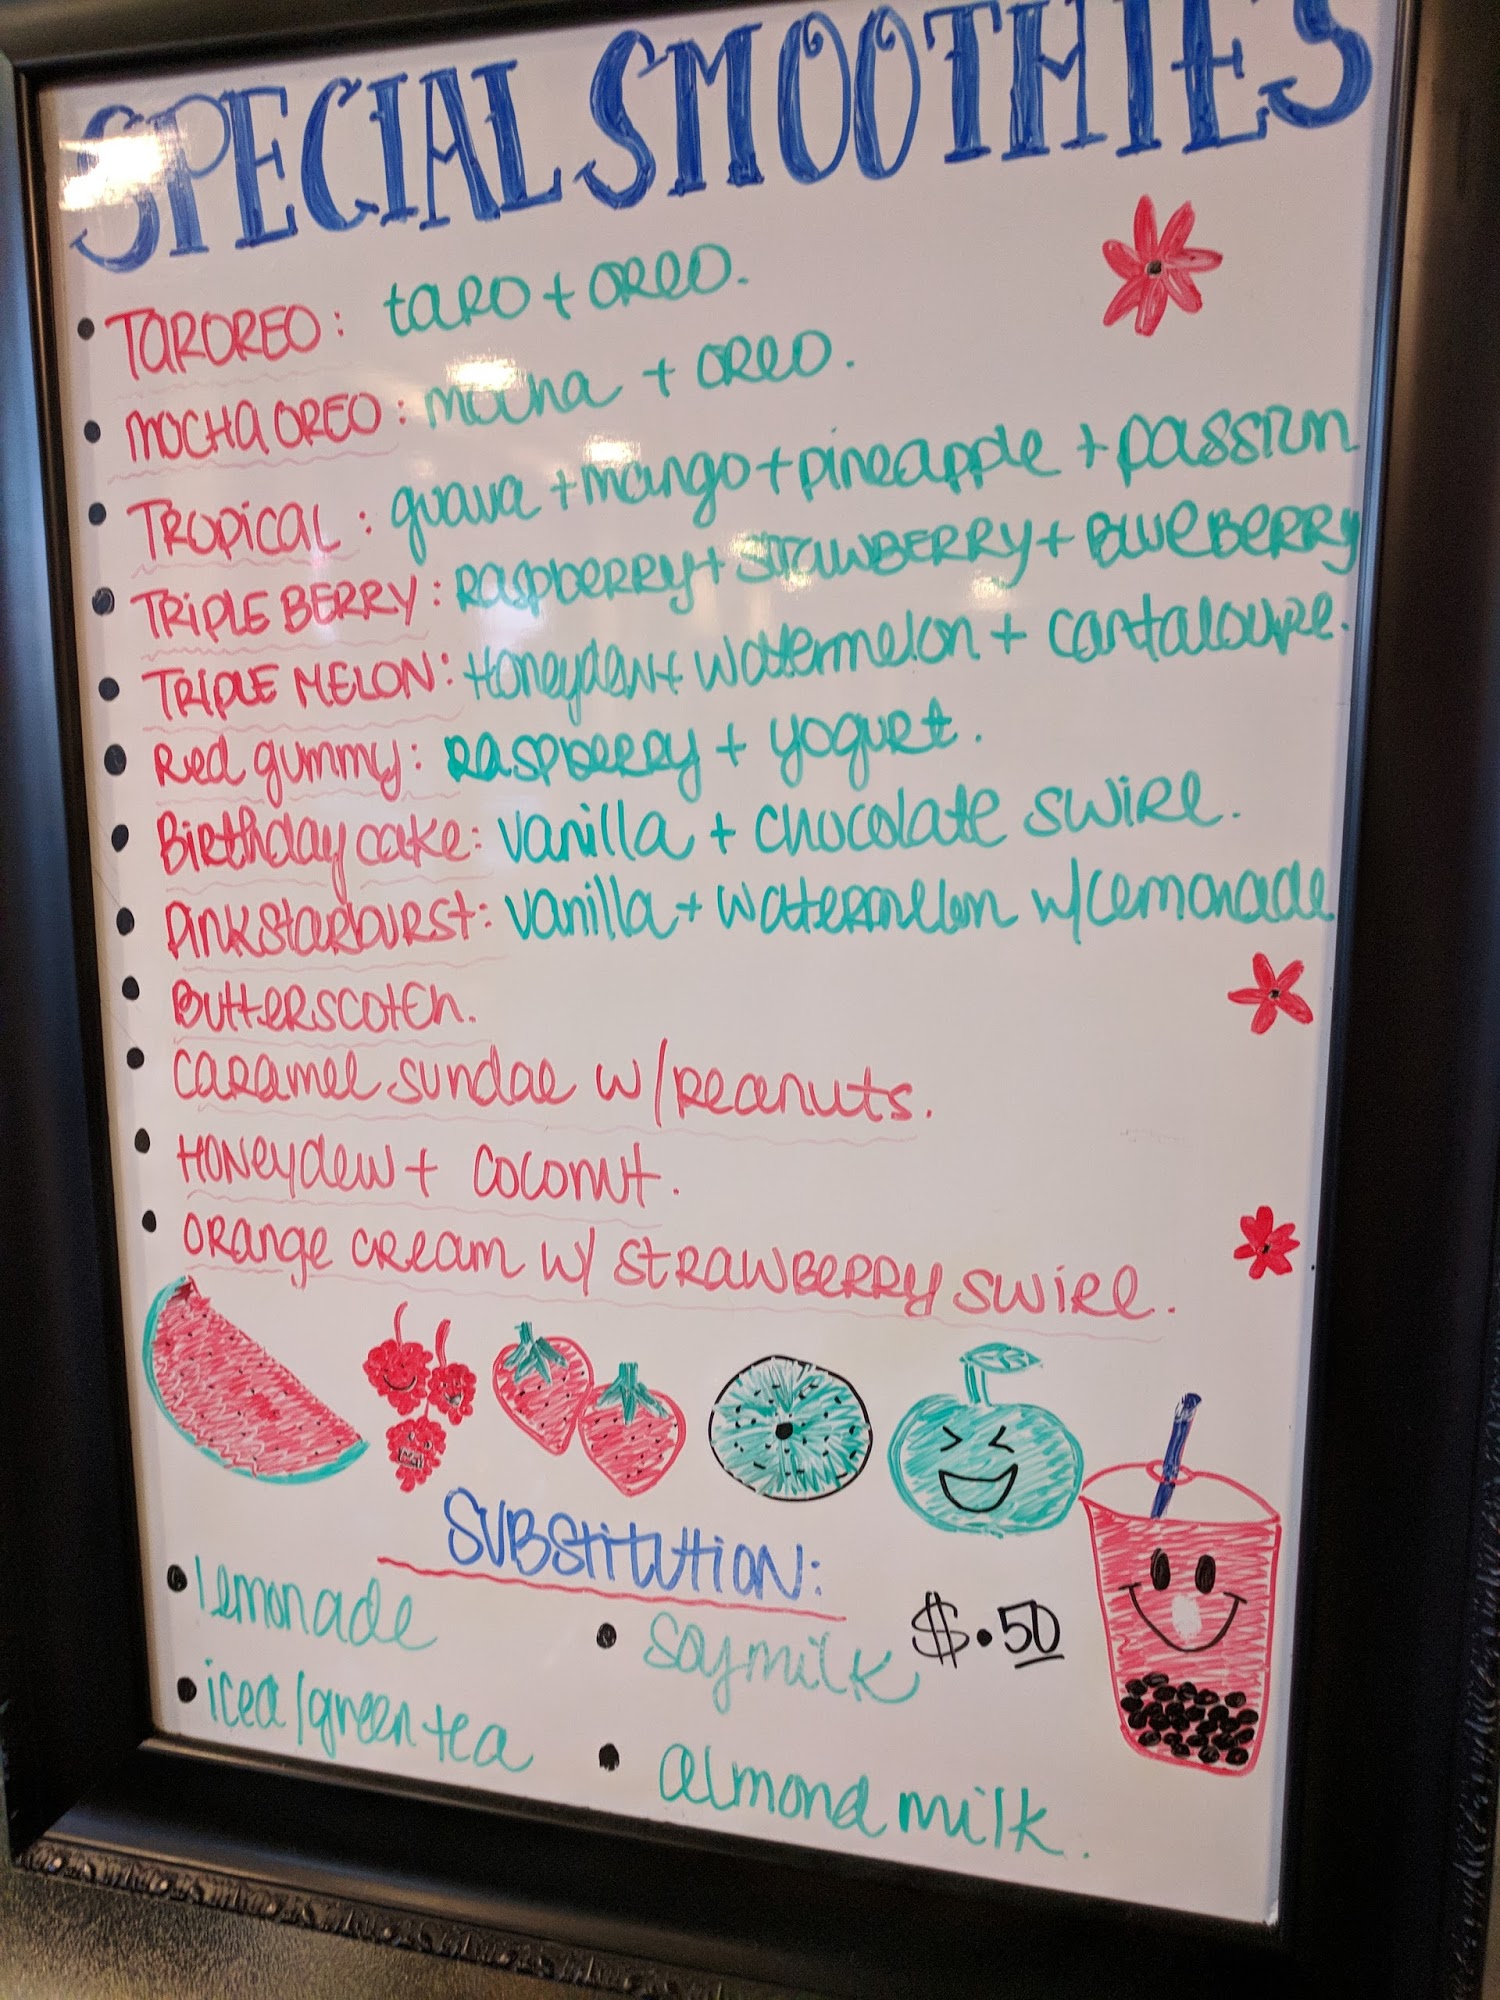 SPECIAL SMOOTHIES
• TAROREO: taro + oreo.
• MOCHA OREO: mocha + oreo.
• TROPICAL: guava + mango + pineapple + passion
• TRIPLE BERRY: Raspberry + STRAWBERRY + BlueBERRY
• TRIPLE MELON: Honeydew + watermelon + cantaloupe.
• Red gummy: Raspberry + yogurt.
• Birthday cake: vanilla + chocolate swirl.
• Pink Starburst: vanilla + watermelon w/lemonade
• Butterscotch.
• caramel sundae w/peanuts.
• Honeydew + coconut.
• orange cream w/ strawberry swirl.
Substitution:
• lemonade
• soymilk $.50
• icea/green tea
• almond milk.